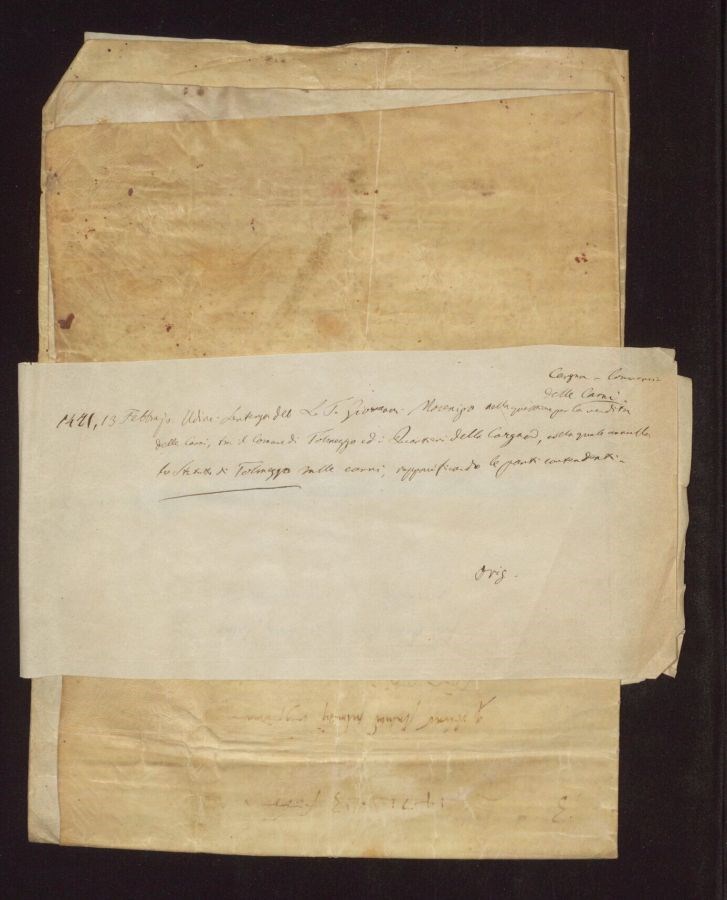 Cargna - Commercio
delle Carni.
1421, 13 Febbrajo. Udine - Sentenza del L. T. Giovanni Mocenigo nella questione per la vendita
delle Carni, tra il Comune di Tolmezzo ed i Quartieri della Cargna, colla quale annulla
lo Statuto di Tolmezzo sulle carni, rappacificando le parti contendenti -
Orig.